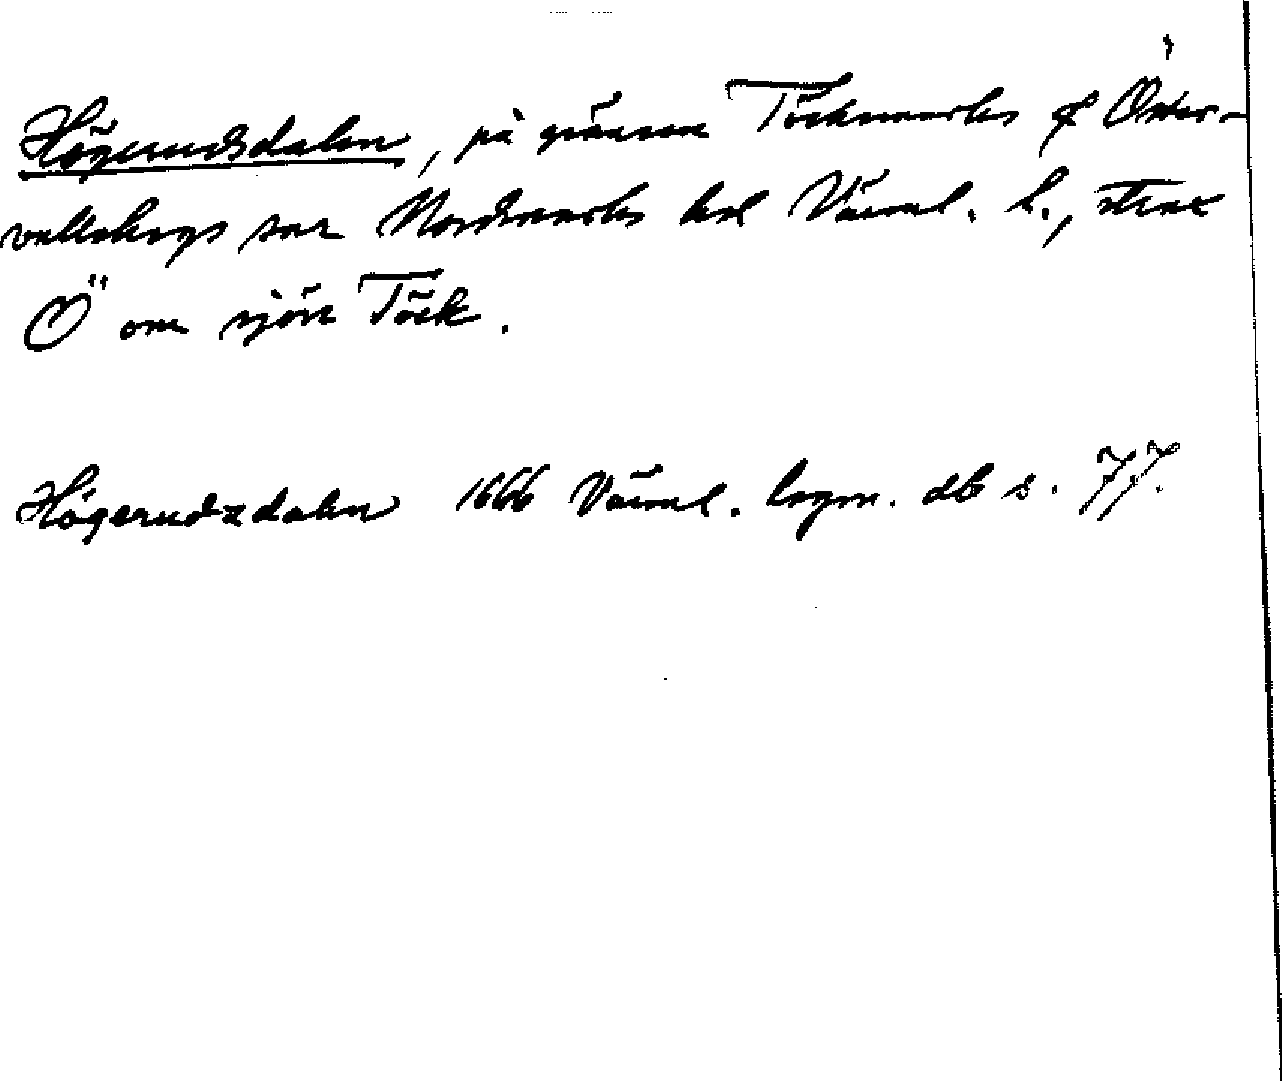 Högerudsdalen, på gränsen Töcknemarks o Öster-
vallskogs snr Nordmarks hd Värml. l., strax
Ö om sjön Töck.
Högerudzdalen 1666 Värml. lagm. db s. 77.